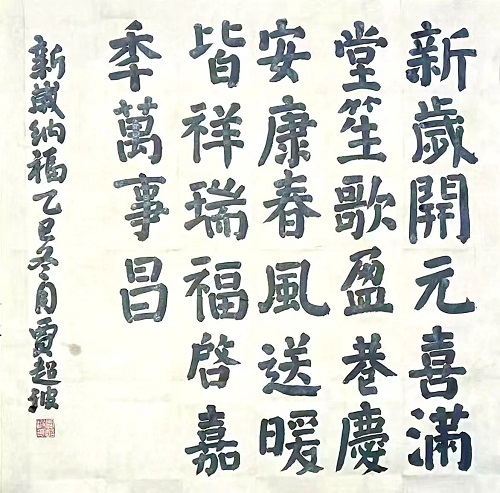 新歲開元喜滿
堂笙歌盈巷慶
安康春風送暖
皆祥瑞福啓嘉
季萬事昌
新歲納福乙巳冬月賈超